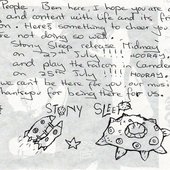 People. Ben here, I hope you are
and content with life and its fr
on. Here's something to cheer you
are not doing so well.
Stony Sleep release Midmay
July !!!! HOORAY.
and play the Falcon in Camde
on 25th July !!!! HOORAY.
we can't be there for you, our musi
Thankyou for being there for us.
STONY SLEEP